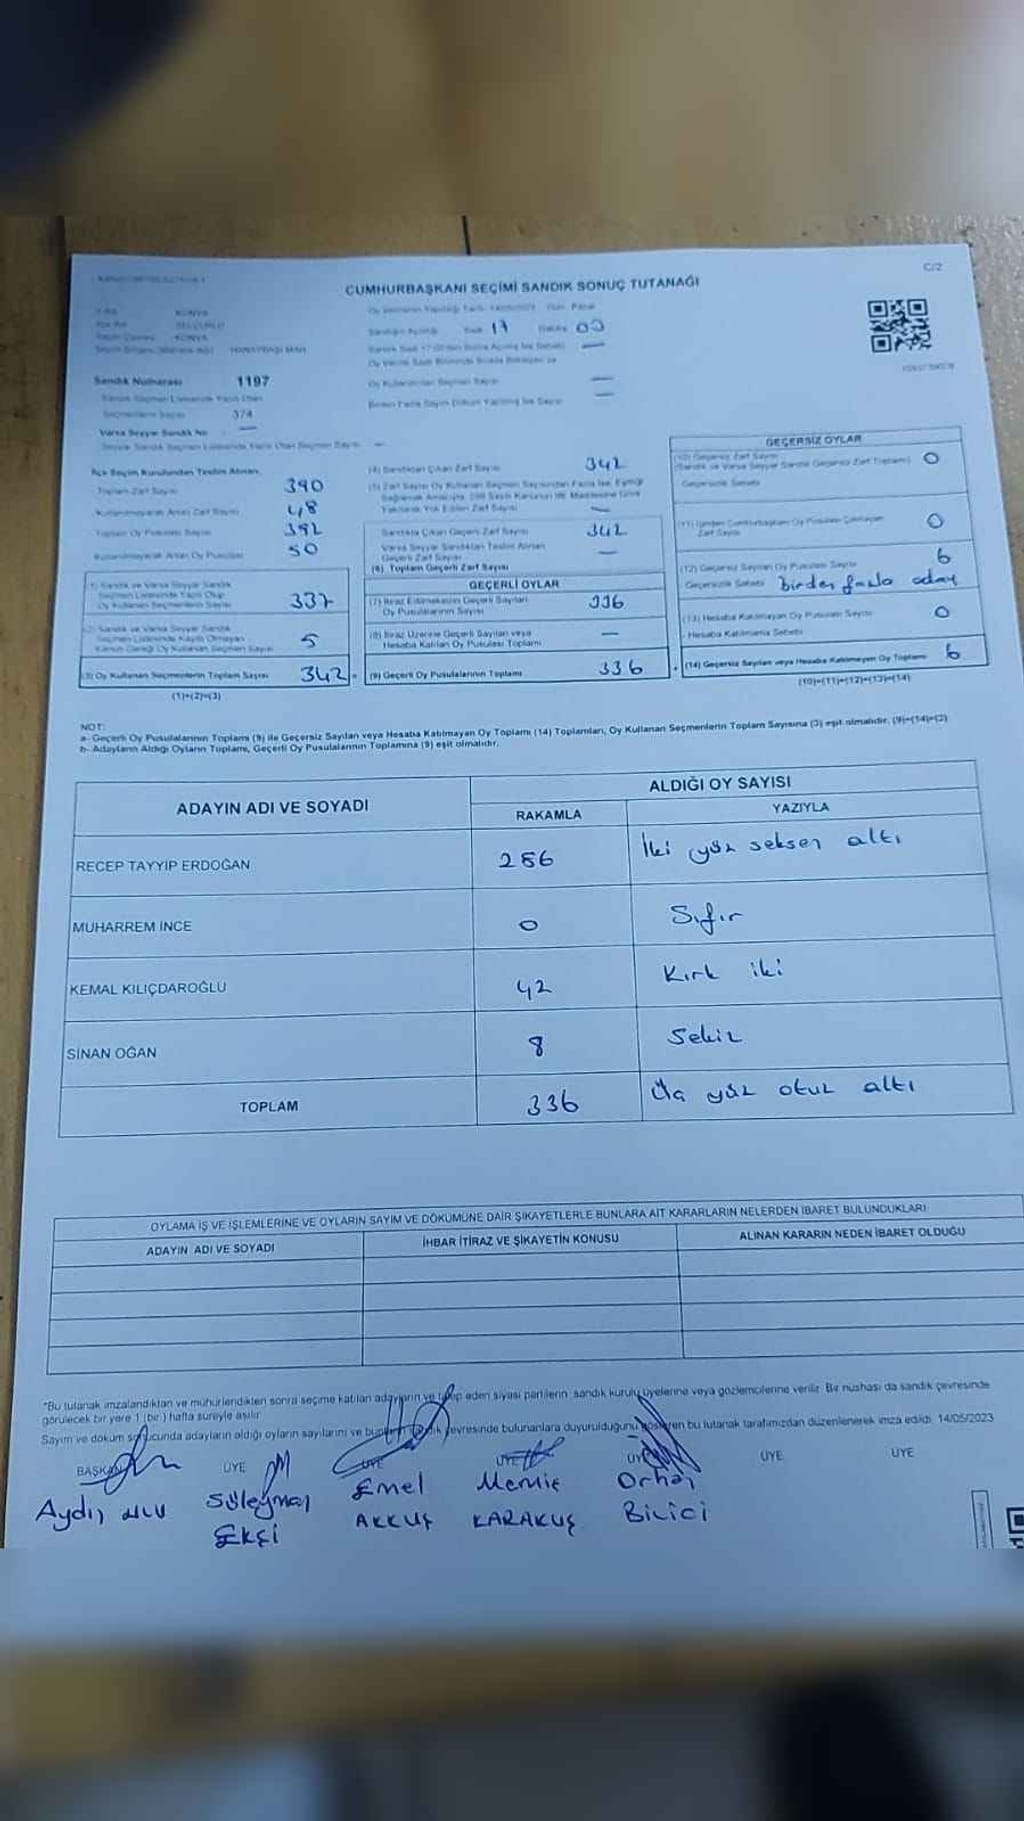 C/2
CUMHURBAŞKANI SEÇİMİ SANDIK SONUÇ TUTANAĞI
KONYA
SELÇUKLU
KONYA
Saat 17 Dakika 00
Sandık Numarası 1197
374
Varsa Seyyar Sandık No
İlçe Seçim Kurulundan Teslim Alınan,
Toplam Zarf Sayısı 390
Kullanılmayarak Artan Zarf Sayısı 48
Toplam Oy Pusulası Sayısı 392
Kullanılmayarak Artan Oy Pusulası 50
(1) Sandık ve Varsa Seyyar Sandık
Seçmen Listesinde Yazılı Olup
Oy Kullanan Seçmenlerin Sayısı 337
(2) Sandık ve Varsa Seyyar Sandık
Seçmen Listesinde Kayıtlı Olmayan
Kanun Gereği Oy Kullanan Seçmen Sayısı 5
(3) Oy Kullanan Seçmenlerin Toplam Sayısı 342
(1)+(2)=(3)
(4) Sandıktan Çıkan Zarf Sayısı 342
Sandıkta Çıkan Geçerli Zarf Sayısı 342
Varsa Seyyar Sandıktan Teslim Alınan
Geçerli Zarf Sayısı
(6) Toplam Geçerli Zarf Sayısı
GEÇERLİ OYLAR
(7) İtiraz Edilmeksizin Geçerli Sayılan
Oy Pusulalarının Sayısı 336
(8) İtiraz Üzerine Geçerli Sayılan veya
Hesaba Katılan Oy Pusulası Toplamı
(9) Geçerli Oy Pusulalarının Toplamı 336
GEÇERSİZ OYLAR
(10) Geçersiz Zarf Sayısı 0
(Sandık ve Varsa Seyyar Sandık Geçersiz Zarf Toplamı)
Geçersizlik Sebebi
(11) İçinden Cumhurbaşkanı Oy Pusulası Çıkmayan
Zarf Sayısı 0
(12) Geçersiz Sayılan Oy Pusulası Sayısı 6
Geçersizlik Sebebi birden fazla aday
(13) Hesaba Katılmayan Oy Pusulası Sayısı 0
Hesaba Katılmama Sebebi
(14) Geçersiz Sayılan veya Hesaba Katılmayan Oy Toplamı 6
(10)+(11)+(12)+(13)=(14)
NOT:
a- Geçerli Oy Pusulalarının Toplamı (9) ile Geçersiz Sayılan veya Hesaba Katılmayan Oy Toplamı (14) Toplamları, Oy Kullanan Seçmenlerin Toplam Sayısına (3) eşit olmalıdır. (9)+(14)=(3)
b- Adayların Aldığı Oyların Toplamı, Geçerli Oy Pusulalarının Toplamına (9) eşit olmalıdır.
ADAYIN ADI VE SOYADI ALDIĞI OY SAYISI
RAKAMLA YAZIYLA
RECEP TAYYİP ERDOĞAN 286 İki yüz seksen altı
MUHARREM İNCE 0 Sıfır
KEMAL KILIÇDAROĞLU 42 Kırk iki
SİNAN OĞAN 8 Sekiz
TOPLAM 336 Üç yüz otuz altı
OYLAMA İŞ VE İŞLEMLERİNE VE OYLARIN SAYIM VE DÖKÜMÜNE DAİR ŞİKAYETLERLE BUNLARA AİT KARARLARIN NELERDEN İBARET BULUNDUKLARI
ADAYIN ADI VE SOYADI İHBAR İTİRAZ VE ŞİKAYETİN KONUSU ALINAN KARARIN NEDEN İBARET OLDUĞU
*Bu tutanak imzalandıktan ve mühürlendikten sonra seçime katılan adayların ve talep eden siyasi partilerin sandık kurulu üyelerine veya gözlemcilerine verilir. Bir nüshası da sandık çevresinde
görülecek bir yere 1 (bir) hafta süreyle asılır.
Sayım ve döküm sonucunda adayların aldığı oyların sayılarını ve bunların sandık çevresinde bulunanlara duyurulduğunu gösteren bu tutanak tarafımızdan düzenlenerek imza edildi. 14/05/2023
BAŞKAN ÜYE ÜYE ÜYE ÜYE ÜYE ÜYE
Aydın Süleyman Emel Memiş Orhan
Ekşi AKKUŞ KARAKUŞ Bilici